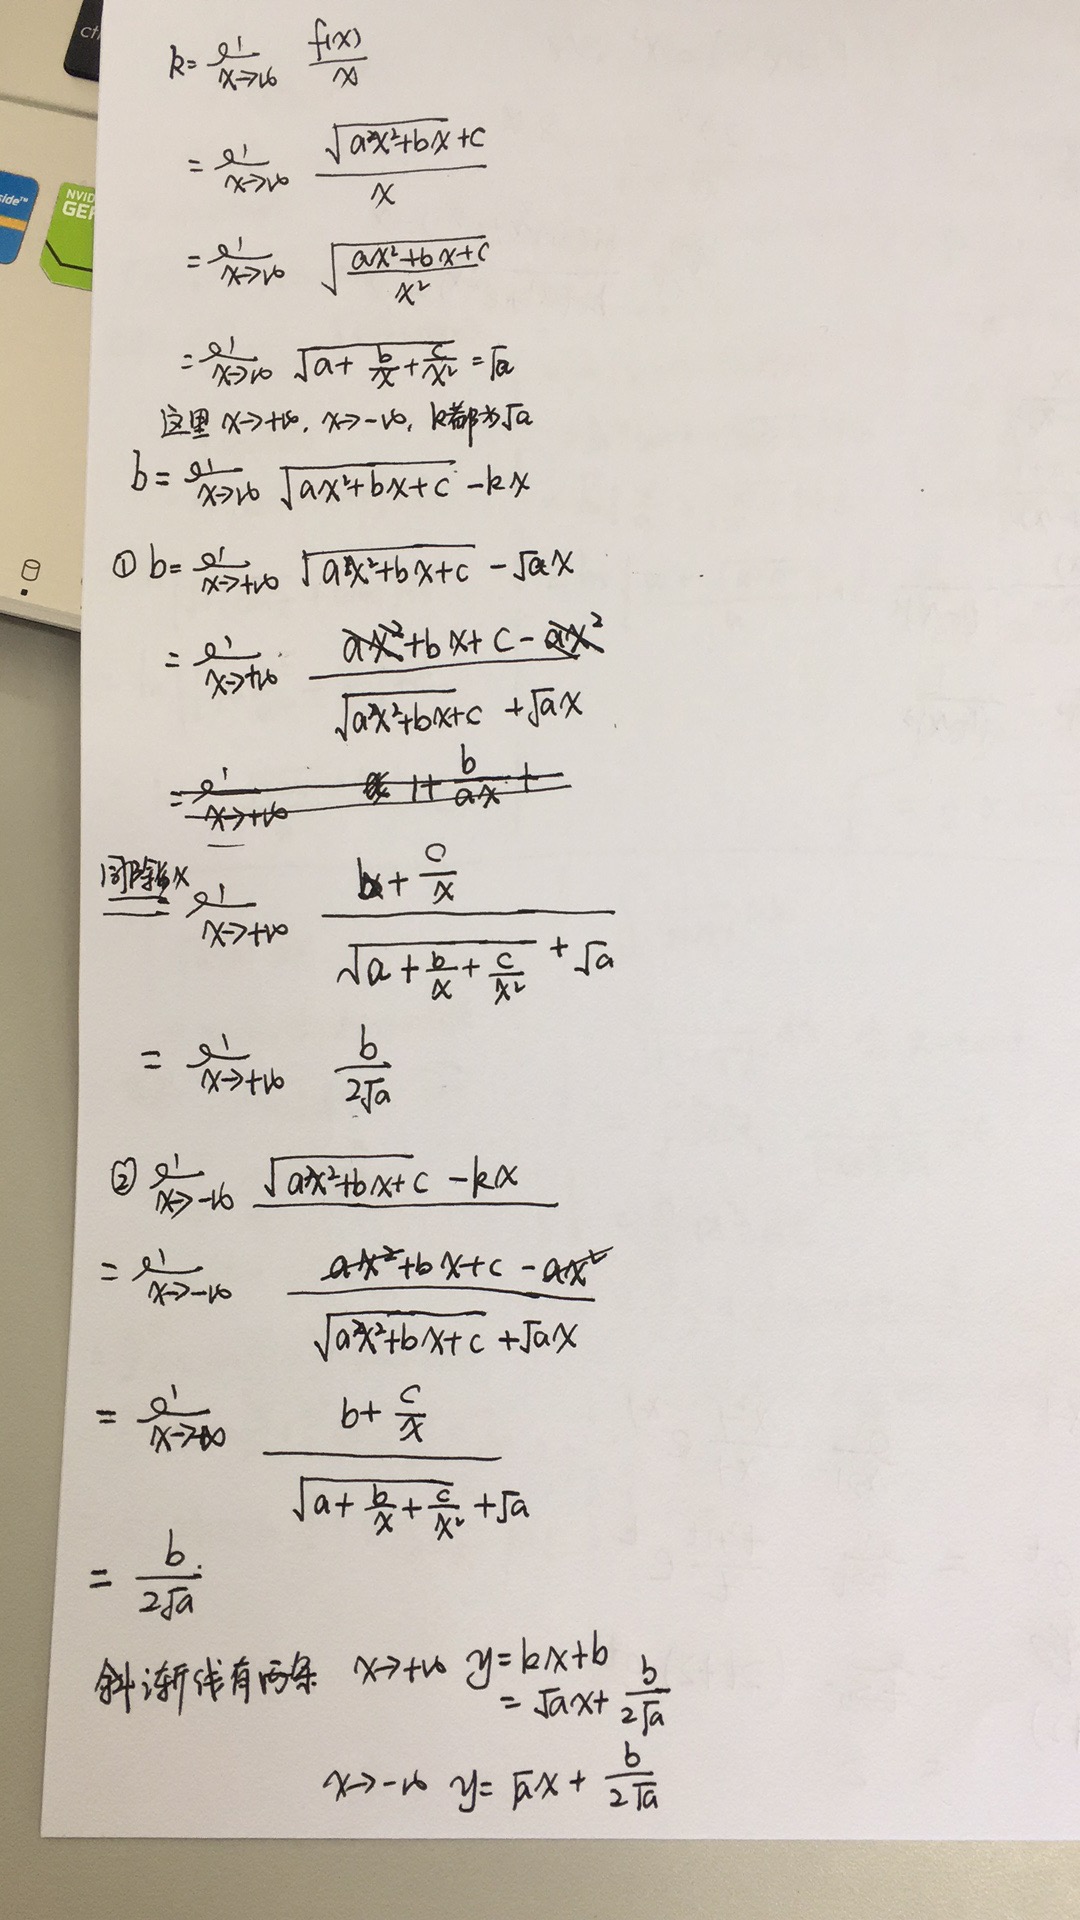 ctrl
side™
NVID
GEF
k= lim x→∞ f(x)/x
= lim x→∞ √(a²x²+bx+c)/x
= lim x→∞ √((ax²+bx+c)/x²)
= lim x→∞ √(a+b/x+c/x²) =√a
这里 x→+∞, x→-∞, k都为√a
b= lim x→∞ √(ax²+bx+c) -kx
① b= lim x→+∞ √(ax²+bx+c) -√ax
= lim x→+∞ (ax²+bx+c-ax²)/(√(a²x²+bx+c) +√ax)
= lim x→+∞ 1+ b/ax +
同除以x lim x→+∞ (b+c/x)/(√(a+b/x+c/x²) +√a)
= lim x→+∞ b/2√a
② lim x→-∞ √(a²x²+bx+c) -kx
= lim x→-∞ (ax²+bx+c-ax²)/(√(a²x²+bx+c) +√ax)
= lim x→-∞ (b+c/x)/(√(a+b/x+c/x²) +√a)
= b/2√a
斜渐线有两条 x→+∞ y=kx+b
=√ax+ b/2√a
x→-∞ y=√ax+ b/2√a